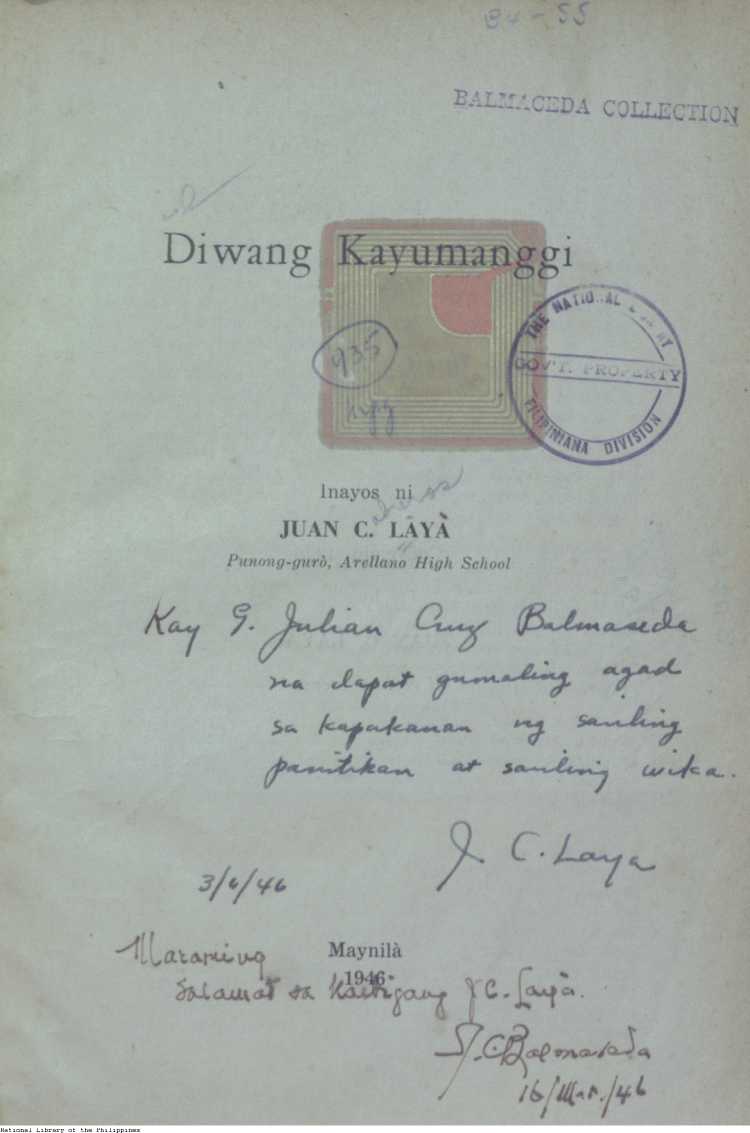 B4-55
BALMACEDA COLLECTION
Diwang Kayumanggi
THE NATIONAL
GOV'T. PROPERTY
FILIPINIANA DIVISION
935
Inayos ni
JUAN C. LAYÀ
Punong-gurò, Arellano High School
Kay G. Julian Cruz Balmaseda
na dapat gumaling agad
sa kapakanan ng sariling
panitikan at sariling wika.
J. C. Laya
3/6/46
Maynilà
1946
Maraming
Salamat sa Kaibigang J C. Layà.
J. C. Balmaseda
16/Mar./46
National Library of the Philippines